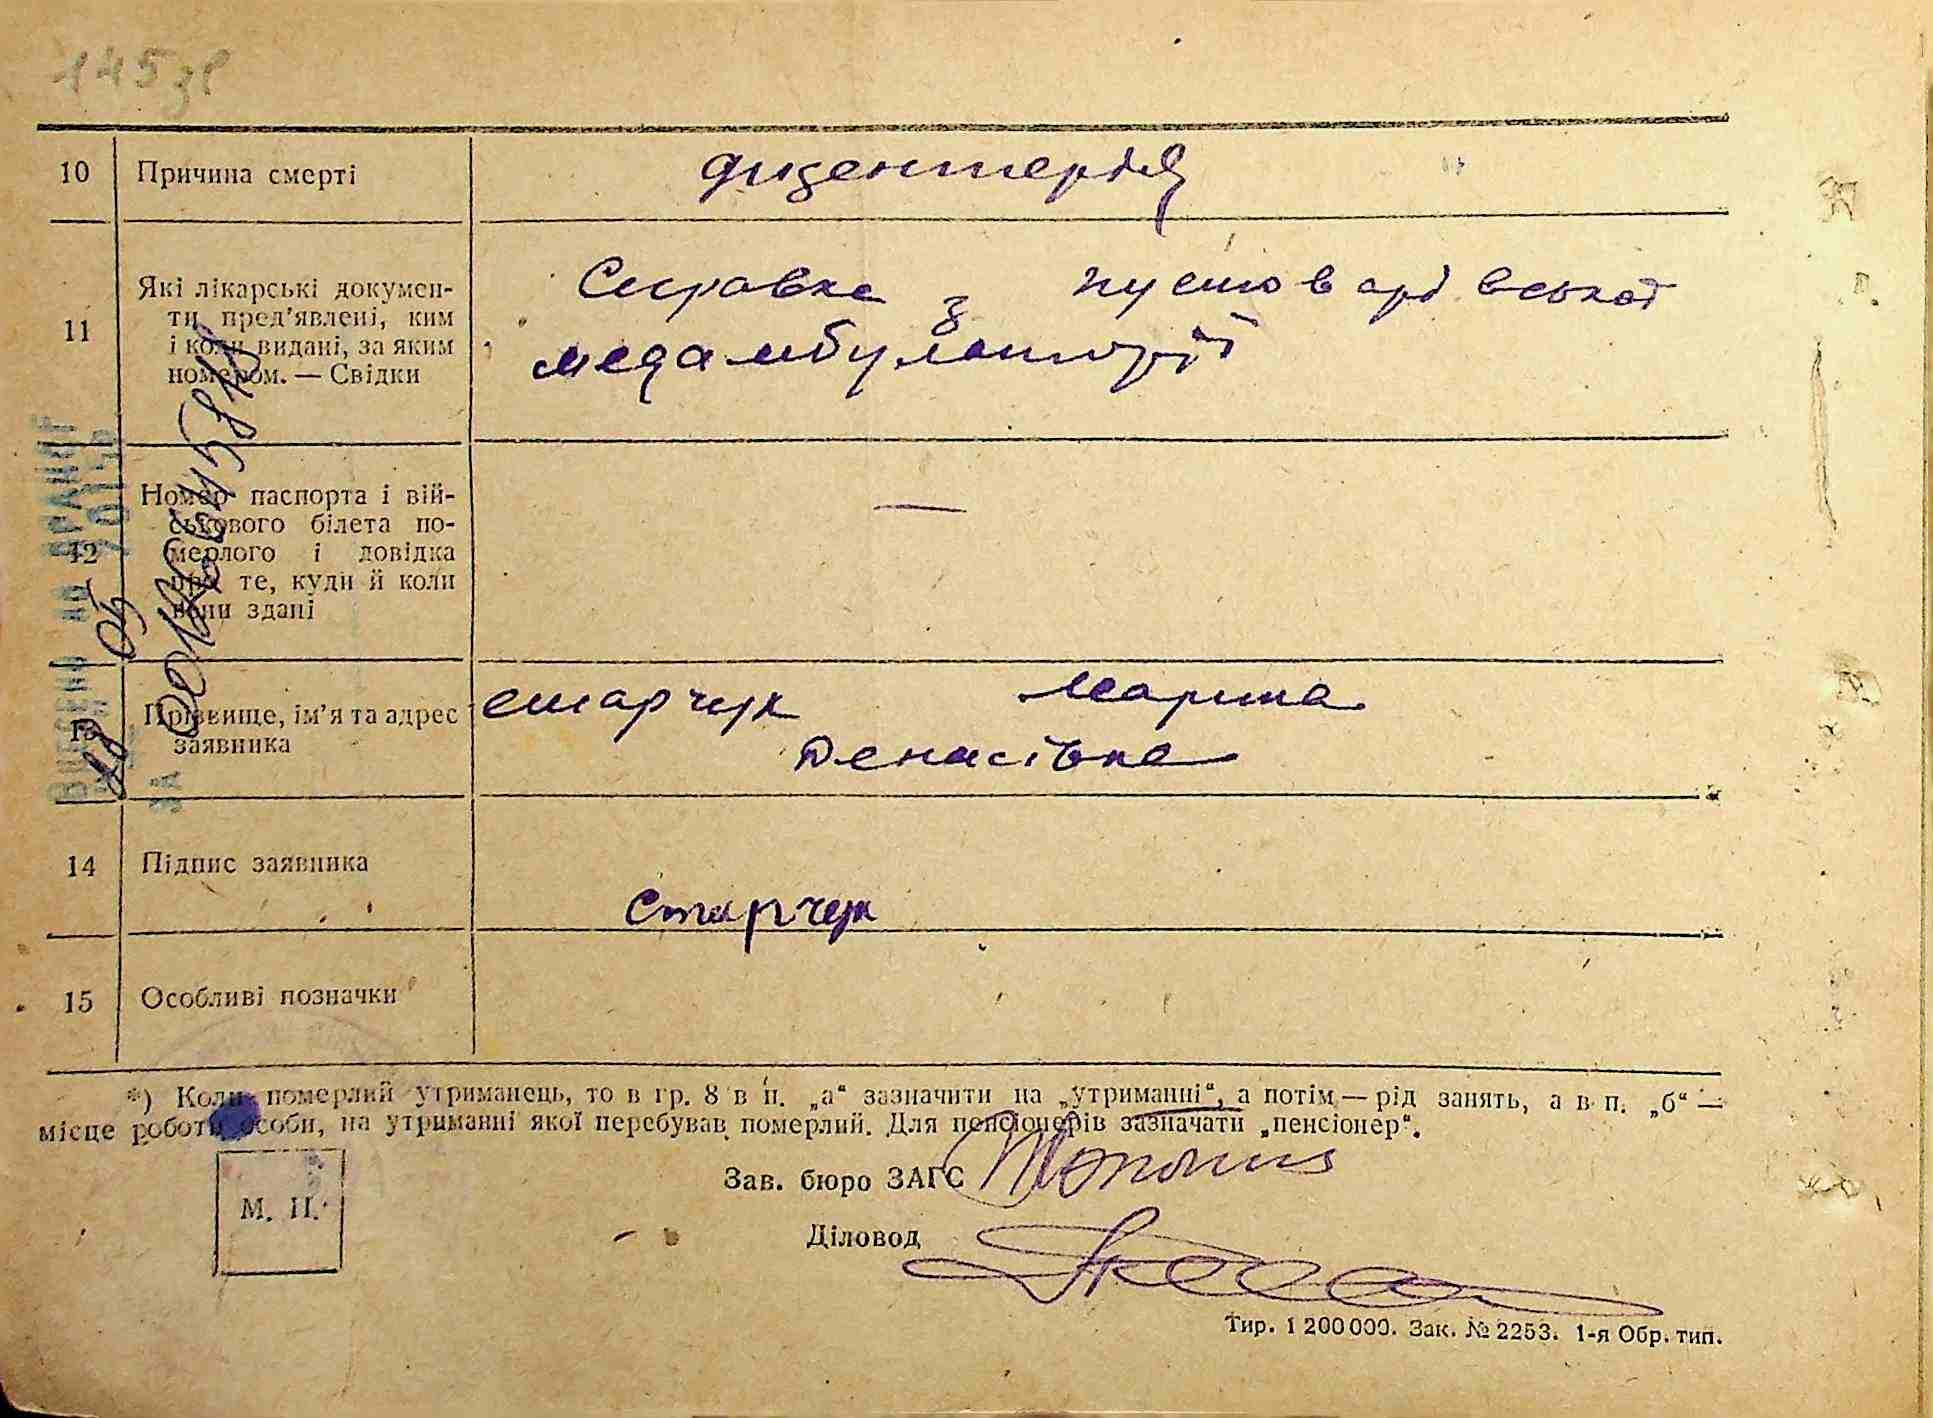 145зв
10 Причина смерті дизентерія
11 Які лікарські докумен-
ти пред'явлені, ким
і коли видані, за яким
номером. — Свідки
Справка з пустоварівської
медамбулаторії
12 Номер паспорта і вій-
ськового білета по-
мерлого і довідка
про те, куди й коли
вони здані
—
13 Прізвище, ім'я та адрес
заявника
Старчук Марина
Денисівна
14 Підпис заявника
Старчук
15 Особливі позначки
*) Коли померлий утриманець, то в гр. 8 в п. „а“ зазначити на „утриманні“, а потім — рід занять, а в п. „б“ —
місце роботи особи, на утриманні якої перебував померлий. Для пенсіонерів зазначати „пенсіонер“.
Зав. бюро ЗАГС
Діловод
М. П.
Тир. 1 200 000. Зак. № 2253. 1-я Обр. тип.